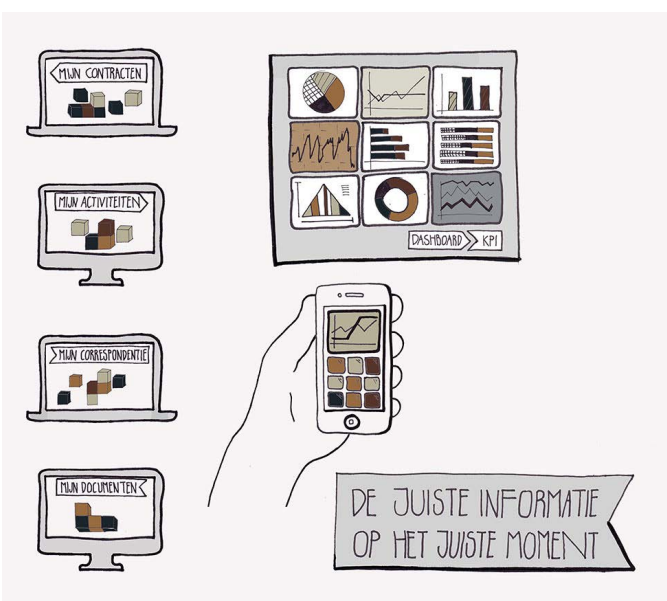 MIJN CONTRACTEN
MIJN ACTIVITEITEN
MIJN CORRESPONDENTIE
MIJN DOCUMENTEN
DASHBOARD KPI
DE JUISTE INFORMATIE
OP HET JUISTE MOMENT